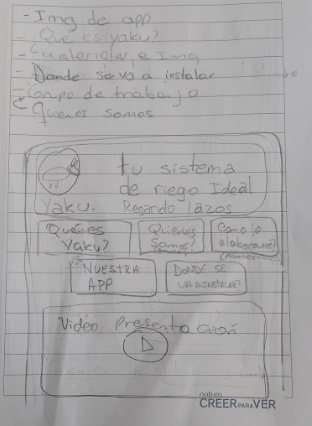 - Img de app
- Que es yaku?
- materiales e Img
- Donde se va a instalar
- Grupo de trabajo
Quienes somos
tu sistema
de riego Ideal
Yaku. Regando lazos
Que es
Yaku?
Quienes
Somos?
Como lo
elaboramos?
NUESTRA
APP
DONDE SE
VA A INSTALAR?
Video Presentación
natura
CREER PARA VER